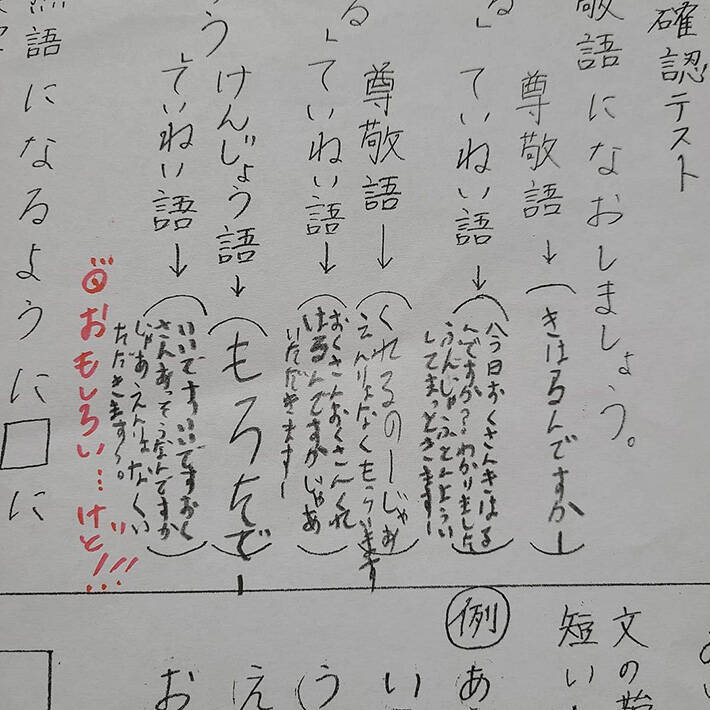 確認テスト
敬語になおしましょう。
尊敬語→(きはるんですかー)
る」ていねい語→(今日おくさんきはる
んですか?わかりました
うんじゃふとんようい
してまっときますー)
尊敬語→(くれるのーじゃあ
えんりょなくもらいますー)
る」ていねい語→(おくさんおくさんくれ
はるんですかじゃあ
いただきますー)
う
けんじょう語→(もろたでー)
」ていねい語→(いいですいいですおく
さんあっそうなんですか
じゃあえんりょなくい
ただきますー。)
おもしろい…けど!!!
語になるように□に
文の
短い
例
あ
い
う
え
お